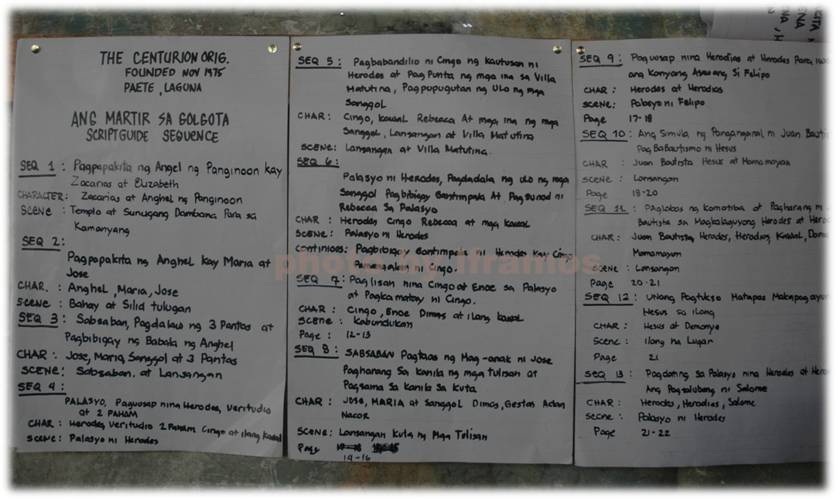 THE CENTURION ORIG.
FOUNDED NOV 1975
PAETE, LAGUNA
ANG MARTIR SA GOLGOTA
SCRIPTGUIDE SEQUENCE
SEQ 1 : Pagpapakita ng Angel ng Panginoon kay
Zacarias at Elizabeth
CHARACTER: Zacarias at Anghel ng Panginoon
SCENE : Templo at Sunugang Dambana Para sa
Kamanyang
SEQ 2:
Pagpapakita ng Anghel kay Maria at
Jose
CHAR. : Anghel, Maria, Jose
SCENE : Bahay at Silid tulugan
SEQ 3 : Sabsaban, Pagdalaw ng 3 Pantas at
Pagbibigay ng Babala ng Anghel
CHAR : Jose, Maria, Sanggol at 3 Pantas
SCENE: Sabsaban. at Lansangan
SEQ 4 :
PALASYO, Paguusap nina Herodes, Veritudio
at 2 PAHAM
CHAR : Herodes, Veritudio 2 Paham Cingo at ilang kawal
SCENE: Palasyo ni Herodes
SEQ 5 : Pagbabandilio ni Cingo ng kautusan ni
Herodes at Pag Punta ng mga ina sa Villa
Matutina, Pagpupugutan ng Ulo ng mga
Sanggol
CHAR : Cingo, kawal Rebecca At mga ina ng mga
Sanggol, Lansangan at Villa Matutina
SCENE: Lansangan at Villa Matutina.
SEQ 6:
Palasyo ni Herodes, Pagdadala ng ulo ng mga
Sanggol Pagbibigay Gantimpala At Pagsunod ni
Rebecca Sa Palasyo
CHAR : Herodes Cingo Rebecca at mga kawal
SCENE: Palasyo ni Herodes
Continioes: Pagbibigay Gantimpala ni Herodes kay Cingo
ni Cingo.
SEQ 7 : Paglisan nina Cingo at Enoe sa Palasyo
at Pagkamatay ni Cingo.
CHAR : Cingo, Enoe Dimas at ilang kawal
SCENE : Kabundukan
Page : 12-13
SEQ 8 : SABSABAN Pagtaas ng Mag-anak ni Jose
Pagharang Sa kanila ng mga tulisan at
Pagsama sa kanila sa kuta
CHAR : JOSE, MARIA at SANGGOL Dimas, Gestas Adan
Nacor
SCENE: Lansangan Kuta ng Mga Tulisan
Page
14-16
SEQ 9 : Paguusap nina Herodias at Herodes Para
ang Kanyang Asawang Si Felipo
CHAR : Herodes at Herodias
SCENE: Palasyo ni Felipo
Page 17-18
SEQ 10 : Ang Simula ng Pangangaral ni Juan
Pag Babautismo ni Hesus
CHAR : Juan Bautista Hesus at Mamamayan
SCENE : Lansangan
Page 18-20
SEQ 11 : Paglabas ng komotiba at Pagharang ni
Bautista sa Magkalaguyong Herodes at
CHAR : Juan Bautista, Herodes, Herodias, Kawal,
Mamamayan
SCENE : Lansangan
Page 20-21
SEQ 12 : Unang Pagtukso Matapos
Hesus sa Ilang
CHAR : Hesus at Demonyo
SCENE : Ilang na Lugar
Page 21
SEQ 13 : Pagdating sa Palasyo nina Herodes at
Ang Pagsalubong ni Salome
CHAR : Herodes, Herodias, Salome
SCENE : Palasyo ni Herodes
Page 21-22
photo by lframos